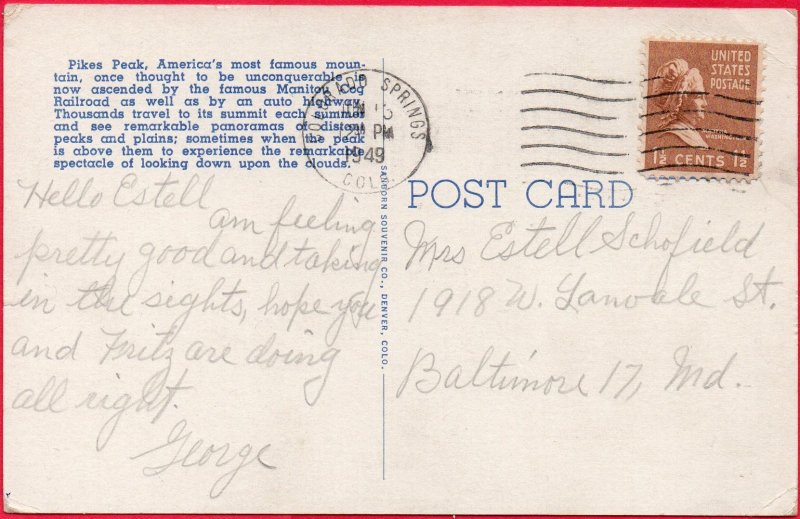 Pikes Peak, America's most famous moun-
tain, once thought to be unconquerable is
now ascended by the famous Manitou Cog
Railroad as well as by an auto highway.
Thousands travel to its summit each summer
and see remarkable panoramas of distant
peaks and plains; sometimes when the peak
is above them to experience the remarkable
spectacle of looking down upon the clouds.
Hello Estell
am feeling
pretty good and taking
in the sights, hope you
and Fritz are doing
all right.
George
SANBORN SOUVENIR CO., DENVER, COLO.
COLORADO SPRINGS
PM
1949
COLO.
UNITED
STATES
POSTAGE
WASHINGTON
1½ CENTS 1½
POST CARD
Mrs Estell Schofield
1918 W. Lanvale St.
Baltimore 17, Md.